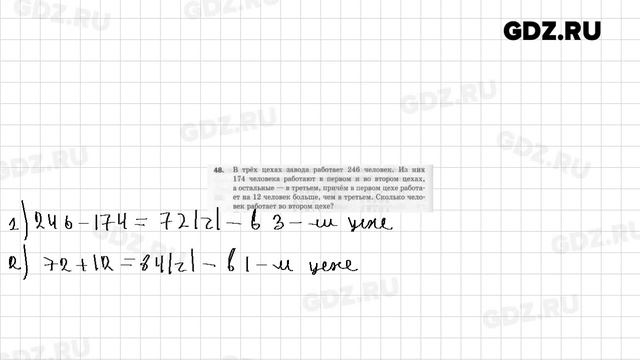 GDZ.RU
48. В трёх цехах завода работает 246 человек. Из них
174 человека работают в первом и во втором цехах,
а остальные — в третьем, причём в первом цехе работа-
ет на 12 человек больше, чем в третьем. Сколько чело-
век работает во втором цехе?
1) 246 - 174 = 72 (ч) - в 3 - м цехе
2) 72 + 12 = 84 (ч) - в 1 - м цехе